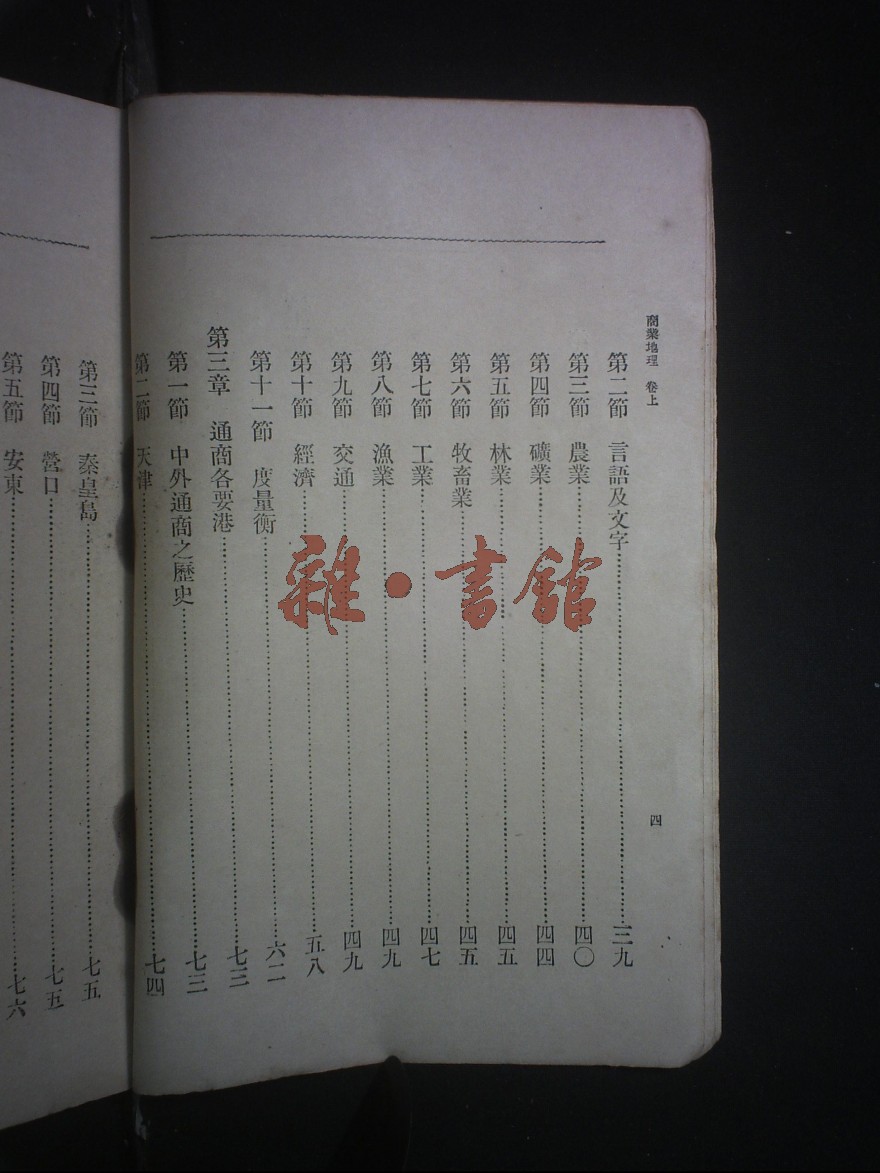 商業地理 卷上
四
第二節 言語及文字⋯⋯三九
第三節 農業⋯⋯四〇
第四節 礦業⋯⋯四四
第五節 林業⋯⋯四五
第六節 牧畜業⋯⋯四五
第七節 工業⋯⋯四七
第八節 漁業⋯⋯四九
第九節 交通⋯⋯四九
第十節 經濟⋯⋯五八
第十一節 度量衡⋯⋯六二
第三章 通商各要港⋯⋯七三
第一節 中外通商之歷史⋯⋯七三
第二節 天津⋯⋯七四
第三節 秦皇島⋯⋯七五
第四節 營口⋯⋯七五
第五節 安東⋯⋯七六
雜·書館